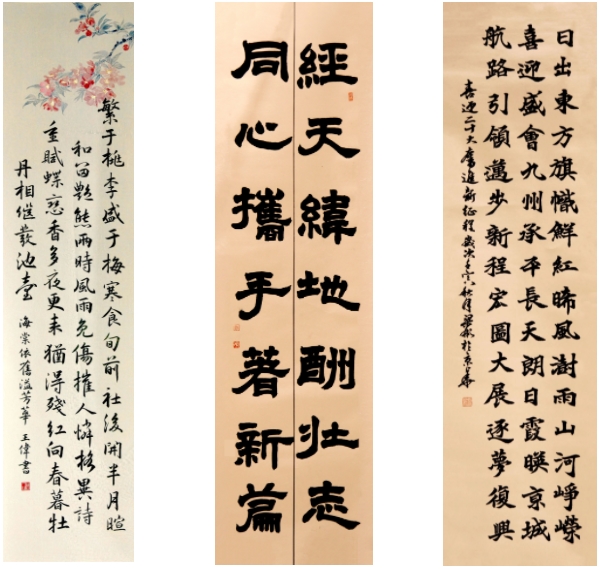 繁于桃李盛于梅寒食旬前社後開半月暄
和留艷態兩時風雨免傷摧人憐格異詩
重賦蝶戀香多夜更來猶得殘紅向春暮牡
丹相繼發池臺
海棠依舊溢芳華 王偉書
經天緯地酬壯志
同心攜手著新篇
日出東方旗幟鮮紅風澍雨山河崢嶸
喜迎盛會九州承平長天朗日霞暎京城
航路引領邁步新程宏圖大展逐夢復興
喜迎二十大奮進新征程歲次壬寅秋月於京